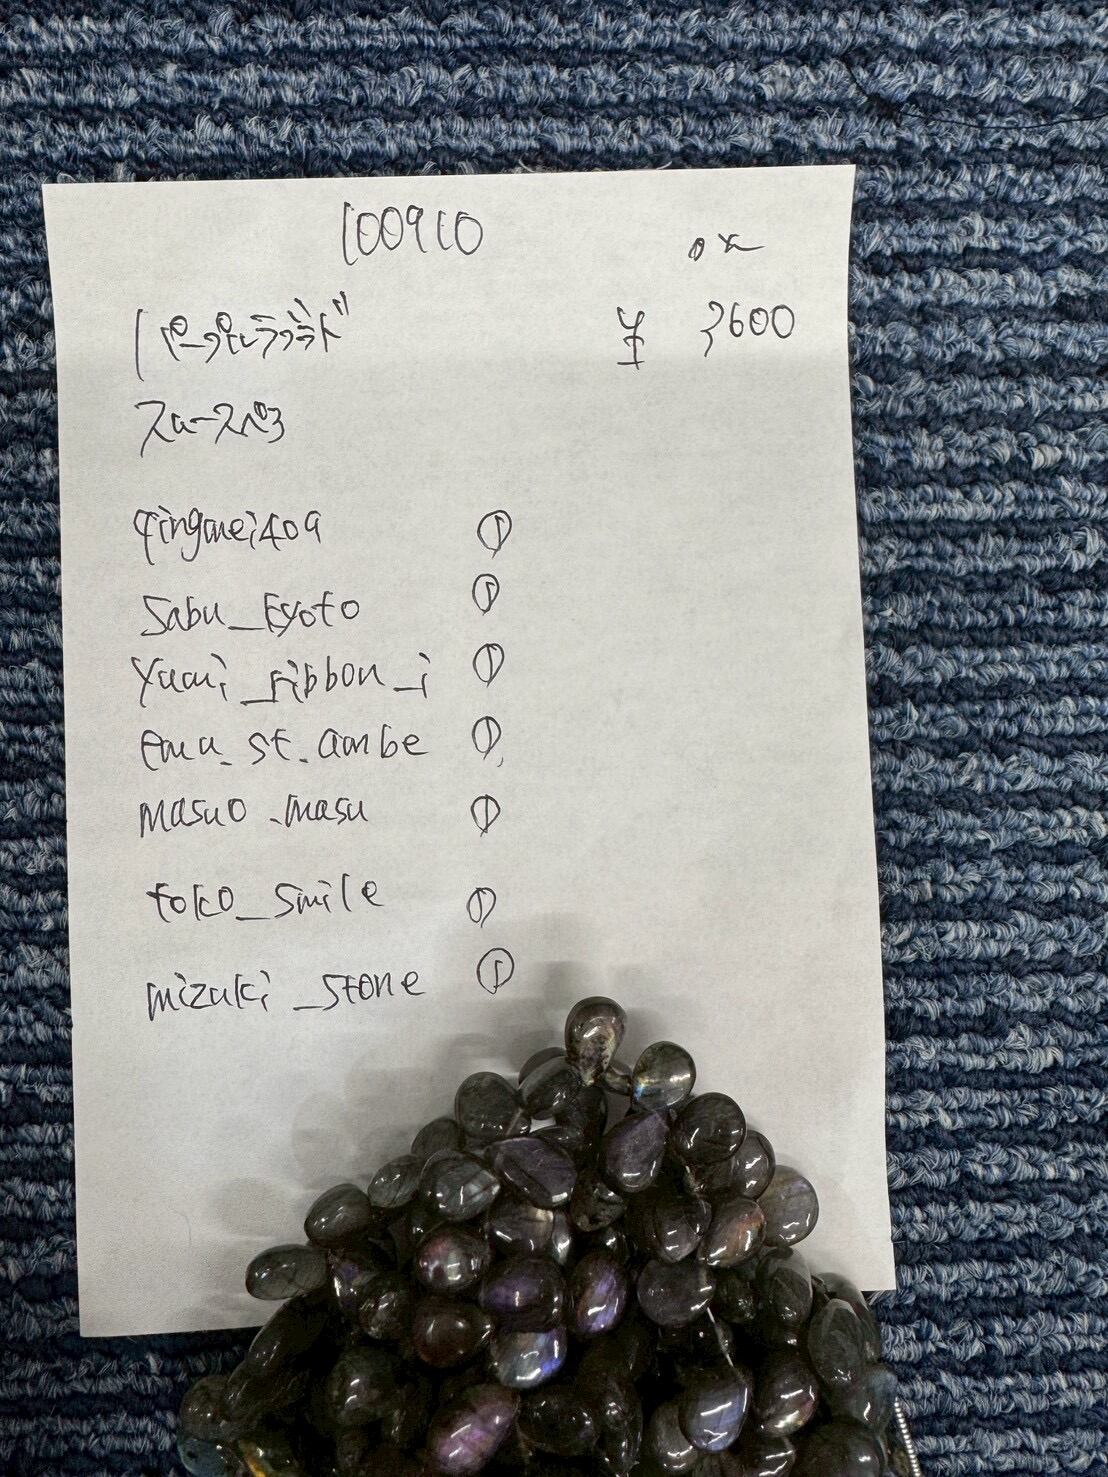 100910
ox
パープルラブラド
¥ 3600
スムースペア
qingmei409 ①
Sabu_kyoto ①
yumi_ribbon_i ①
ema_st.ambe ①
masuo.masu ①
toko_smile ①
mizuki_stone ①